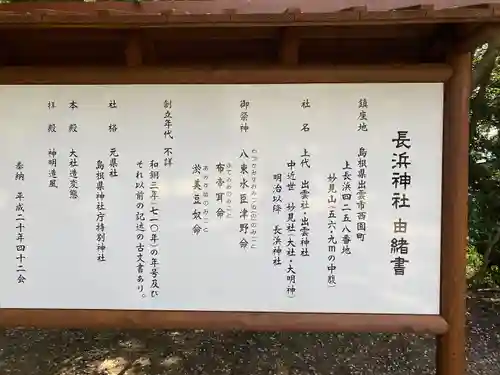 長浜神社 由緒書
鎮座地 島根県出雲市西園町
上長浜四二五八番地
妙見山(五六・九mの中腹)
社名 上代 出雲社・出雲神社
中近世 妙見社(大社・大明神)
明治以降 長浜神社
御祭神 八束水臣津野命
布帝耳命
ふてみみのみこと
淤美豆奴命
おみづぬのみこと
創立年代 不詳
和銅三年(七一〇年)の年号及び
それ以前の記述の古文書あり。
社格 元県社
島根県神社庁特別神社
本殿 大社造変態
拝殿 神明造風
奉納 平成二十年四十二会